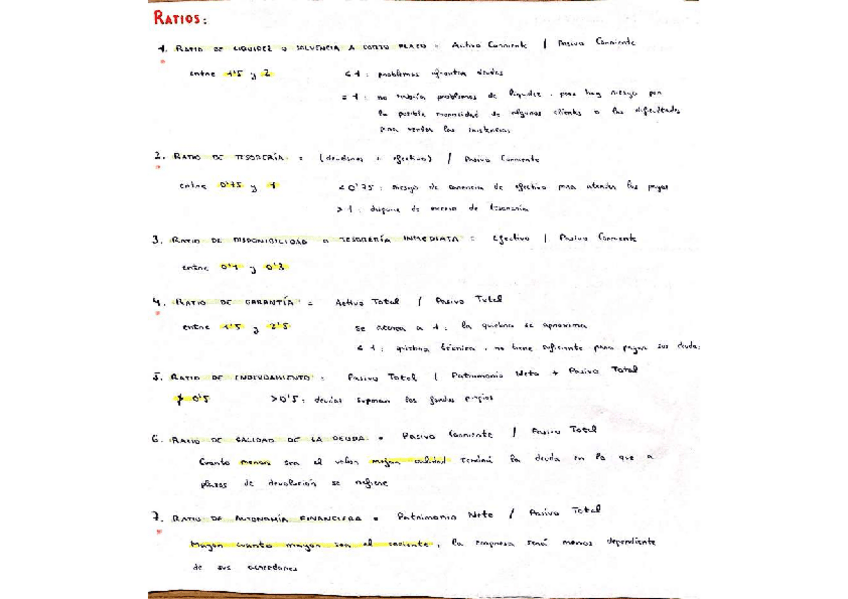 RATIOS:
1. RATIO DE LIQUIDEZ O SOLVENCIA A CORTO PLAZO = Activo Corriente / Pasivo Corriente
entre 1'5 y 2 < 1: problemas afrontar deudas
= 1: no habría problemas de liquidez, pero hay riesgo por
la posible morosidad de algunos clientes o las dificultades
para vender las existencias
2. RATIO DE TESORERÍA = (deudores + efectivo) / Pasivo Corriente
entre 0'75 y 1 < 0'75: riesgo de carencia de efectivo para atender los pagos
> 1: dispone de exceso de tesorería
3. RATIO DE DISPONIBILIDAD o TESORERÍA INMEDIATA = Efectivo / Pasivo Corriente
entre y
4. RATIO DE GARANTÍA = Activo Total / Pasivo Total
entre 1'5 y 2'5 se acerca a 1: la quiebra se aproxima
< 1: quiebra técnica, no tiene suficiente para pagar sus deudas
5. RATIO DE ENDEUDAMIENTO = Pasivo Total / Patrimonio Neto + Pasivo Total
0'5 > 0'5: deudas superan los fondos propios
6. RATIO DE CALIDAD DE LA DEUDA = Pasivo Corriente / Pasivo Total
Cuanto menor sea el valor mejor calidad tendrá la deuda en lo que a
plazos de devolución se refiere
7. RATIO DE AUTONOMÍA FINANCIERA = Patrimonio Neto / Pasivo Total
Mayor cuanto mayor sea el cociente, la empresa será menos dependiente
de sus acreedores